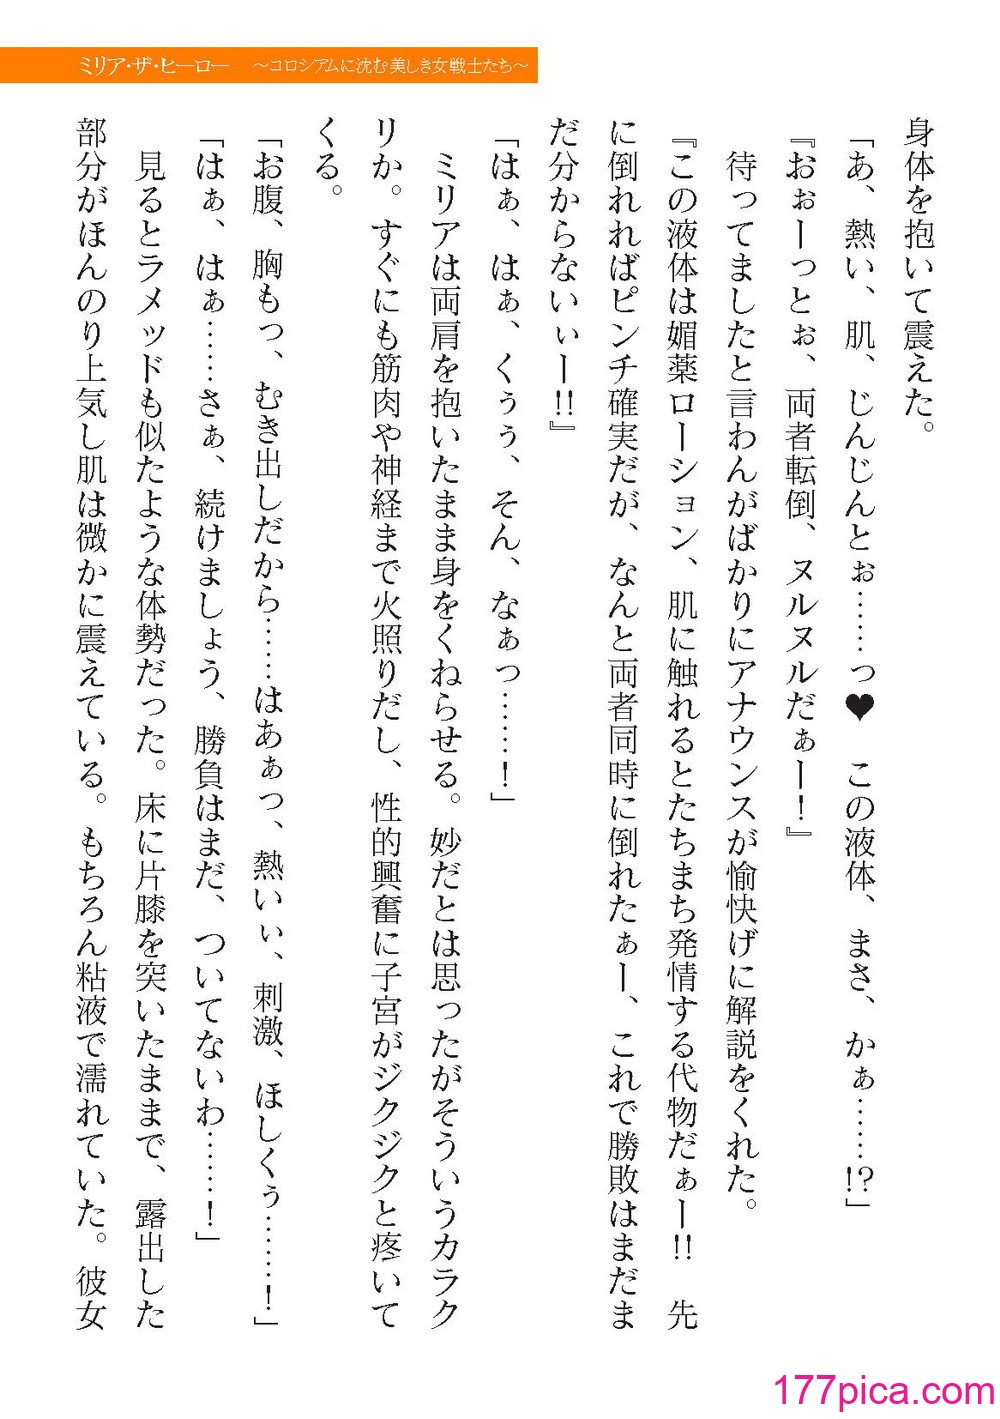 ミリア・ザ・ヒーロー　～コロシアムに沈む美しき女戦士たち～
身体を抱いて震えた。
「あ、熱い、肌、じんじんとぉ……っ♥　この液体、まさ、かぁ……!?」
『おぉーっとぉ、両者転倒、ヌルヌルだぁー！』
　待ってましたと言わんがばかりにアナウンスが愉快げに解説をくれた。
『この液体は媚薬ローション、肌に触れるとたちまち発情する代物だぁー!!　先
に倒れればピンチ確実だが、なんと両者同時に倒れたぁー、これで勝敗はまだま
だ分からないぃー!!』
「はぁ、はぁ、くぅぅ、そん、なぁっ……！」
　ミリアは両肩を抱いたまま身をくねらせる。妙だとは思ったがそういうカラク
リか。すぐにも筋肉や神経まで火照りだし、性的興奮に子宮がジクジクと疼いて
くる。
「お腹、胸もっ、むき出しだから……はあぁっ、熱いぃ、刺激、ほしくぅ……！」
「はぁ、はぁ……さぁ、続けましょう、勝負はまだ、ついてないわ……！」
　見るとラメッドも似たような体勢だった。床に片膝を突いたままで、露出した
部分がほんのり上気し肌は微かに震えている。もちろん粘液で濡れていた。彼女
177pica.com